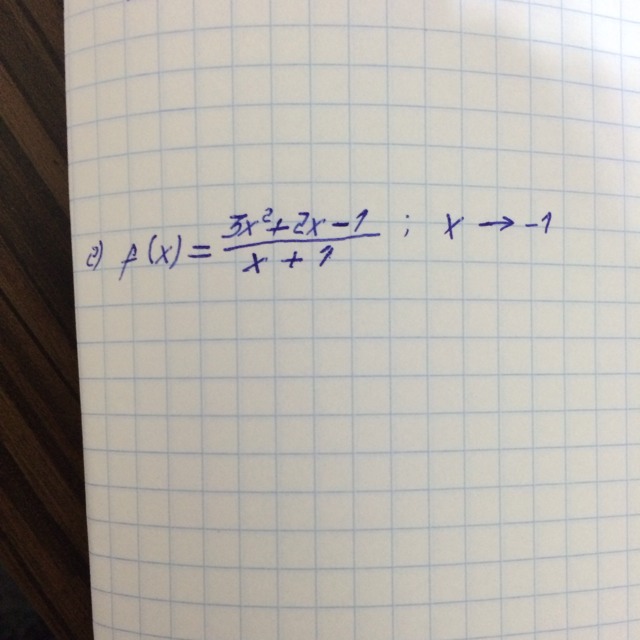 c) f(x) = (3x²+2x-1)/(x+1) ; x → -1